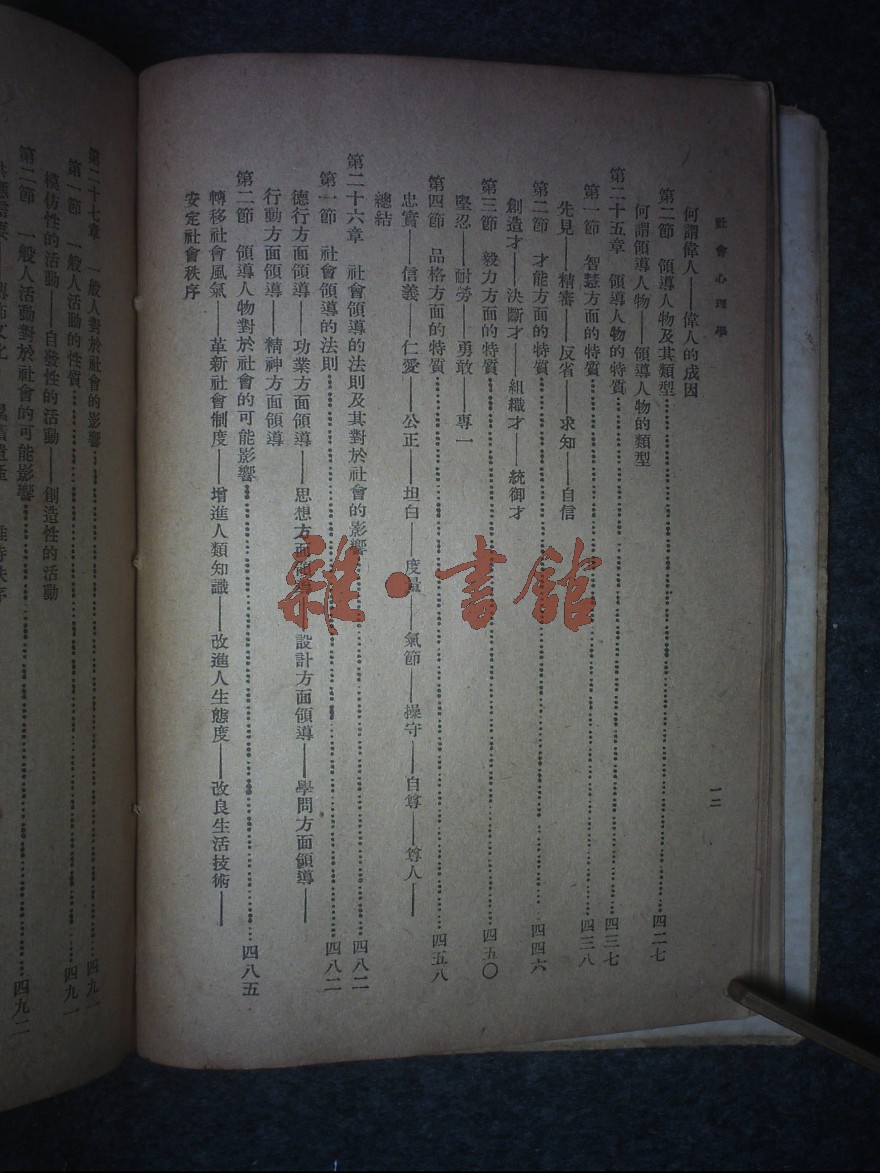 社會心理學
一二
何謂偉人——偉人的成因
第二節　領導人物及其類型……四二七
何謂領導人物——領導人物的類型
第二十五章　領導人物的特質……四三七
第一節　智慧方面的特質……四三八
先見——精審——反省——求知——自信
第二節　才能方面的特質……四四六
創造才——決斷才——組織才——統御才
第三節　毅力方面的特質……四五〇
堅忍——耐勞——勇敢——專一
第四節　品格方面的特質……四五八
忠實——信義——仁愛——公正——坦白——度量——氣節——操守——自尊——尊人——
總結
第二十六章　社會領導的法則及其對於社會的影響……四八二
第一節　社會領導的法則……四八二
德行方面領導——功業方面領導——思想方面領導——設計方面領導——學問方面領導——
行動方面領導——精神方面領導
第二節　領導人物對於社會的可能影響……四八五
轉移社會風氣——革新社會制度——增進人類知識——改進人生態度——改良生活技術——
安定社會秩序
第二十七章　一般人對於社會的影響……四九一
第一節　一般人活動的性質……四九一
模仿性的活動——自發性的活動——創造性的活動
第二節　一般人活動對於社會的可能影響……四九二
雜·書館